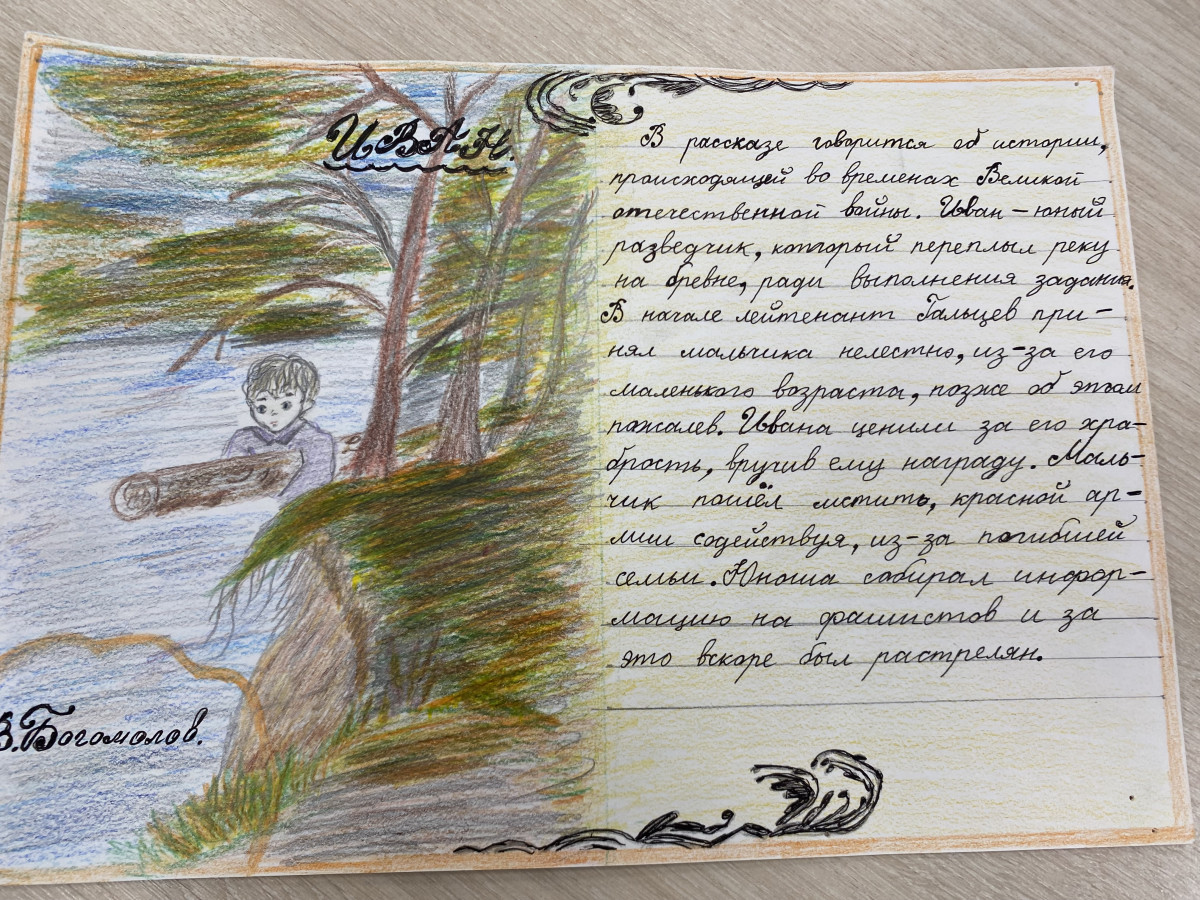 ИВАН.
В.Богомолов.
В рассказе говорится об истории,
происходящей во временах Великой
отечественной войны. Иван – юный
разведчик, который переплыл реку
на бревне, ради выполнения задания.
В начале лейтенант Гальцев при-
нял мальчика нелестно, из-за его
маленького возраста, позже об этом
пожалев. Ивана ценили за его хра-
брость, вручив ему награду. Маль-
чик пошёл мстить, красной ар-
мии содействуя, из-за погибшей
семьи. Юноша собирал инфор-
мацию на фашистов и за
это вскоре был растрелян.